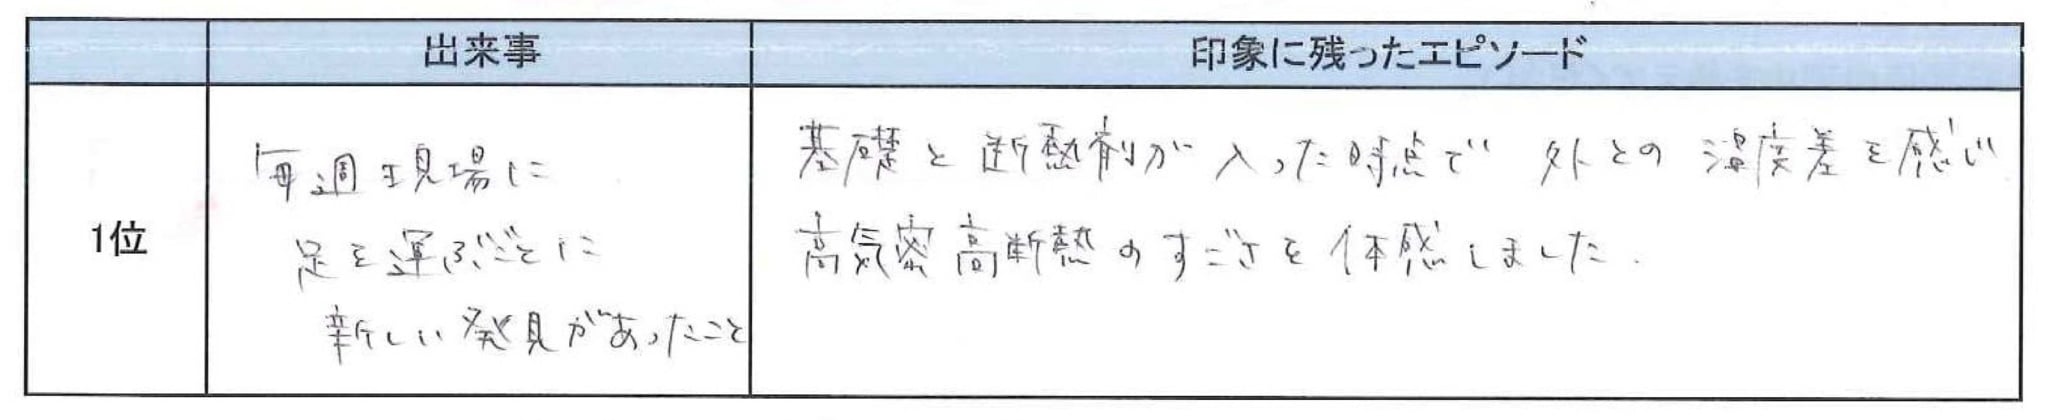 出来事
印象に残ったエピソード
1位
毎週現場に
足を運ぶごとに
新しい発見があったこと
基礎と断熱剤が入った時点で 外との温度差を感じ
高気密高断熱のすごさを体感しました.